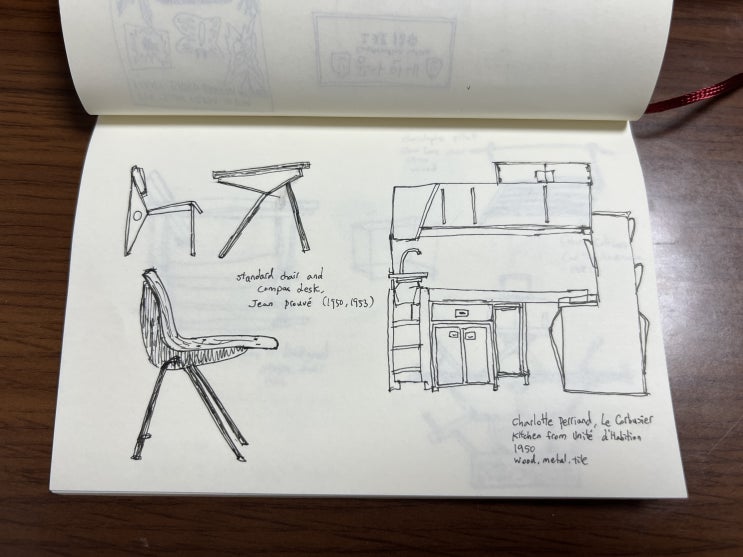 standard chair and
compas desk,
Jean prouvé (1950, 1953)
charlotte perriand, Le Corbusier
kitchen from unité d'Habition
1950
wood, metal, tile